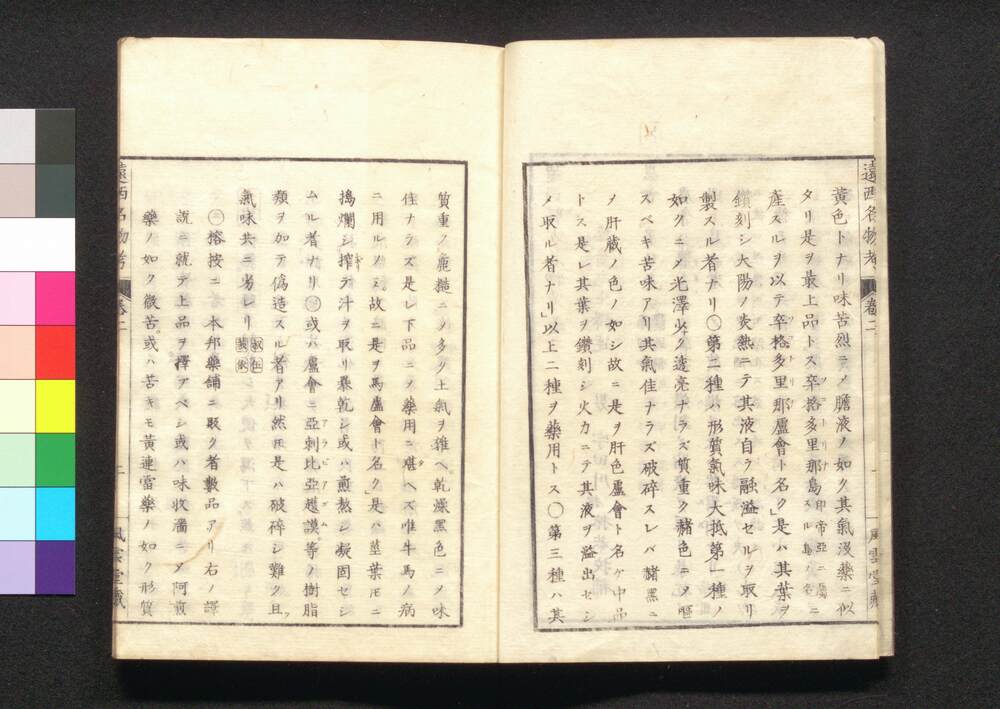 遠西名物考
卷二
風雲堂藏
黄色トナリ味苦烈ニメ膽液ノ如ク其氣沒藥ニ似
タリ是ヲ最上品トス卒格多里那島印帝亞ニ屬スル島ノ名ニ
産スルヲ以テ卒格多里那盧會ト名ク」是ハ其葉ヲ
鑚刻シ大陽ノ炎熱ニテ其液自ラ融溢セルヲ取リ
製スル者ナリ○第二種ハ形質氣味大抵第一種ノ
如クニメ光澤少ク透亮ナラズ質重ク赭色ニメ嘔
スベキ苦味アリ其氣佳ナラズ破碎スレバ赭黒ニ
メ肝藏ノ色ノ如シ故ニ是ヲ肝色盧會ト名ケ中品
トス是レ其葉ヲ鑚刻シ火力ニテ其液ヲ溢出セシ
メ取ル者ナリ」以上二種ヲ藥用トス○第三種ハ其
質重ク麁糙ニメ多ク土氣ヲ雜ヘ乾燥黒色ニメ味
佳ナラズ是レ下品ニメ藥用ニ堪ヘズ唯牛馬ノ病
ニ用ルノミ故ニ是ヲ馬盧會ト名ク」是ハ莖葉トモニ
搗爛シ搾テ汁ヲ取リ曝乾シ或ハ煎熬シ凝固セシ
ムル者ナリ○或ハ盧會ニ亞剌比亞護謨等ノ樹脂
類ヲ加テ僞造スル者アリ然トモ是ハ破碎シ難ク且
氣味共ニ劣レリ
○榕按ニ本邦藥舗ニ販ク者數品アリ右ノ譯
説ニ就テ上品ヲ擇ブベシ或ハ味收濇ニメ阿煎
藥ノ如ク微苦。或ハ苦キモ黄連富藥ノ如ク形質
遠西名物考
卷二
風雲堂藏